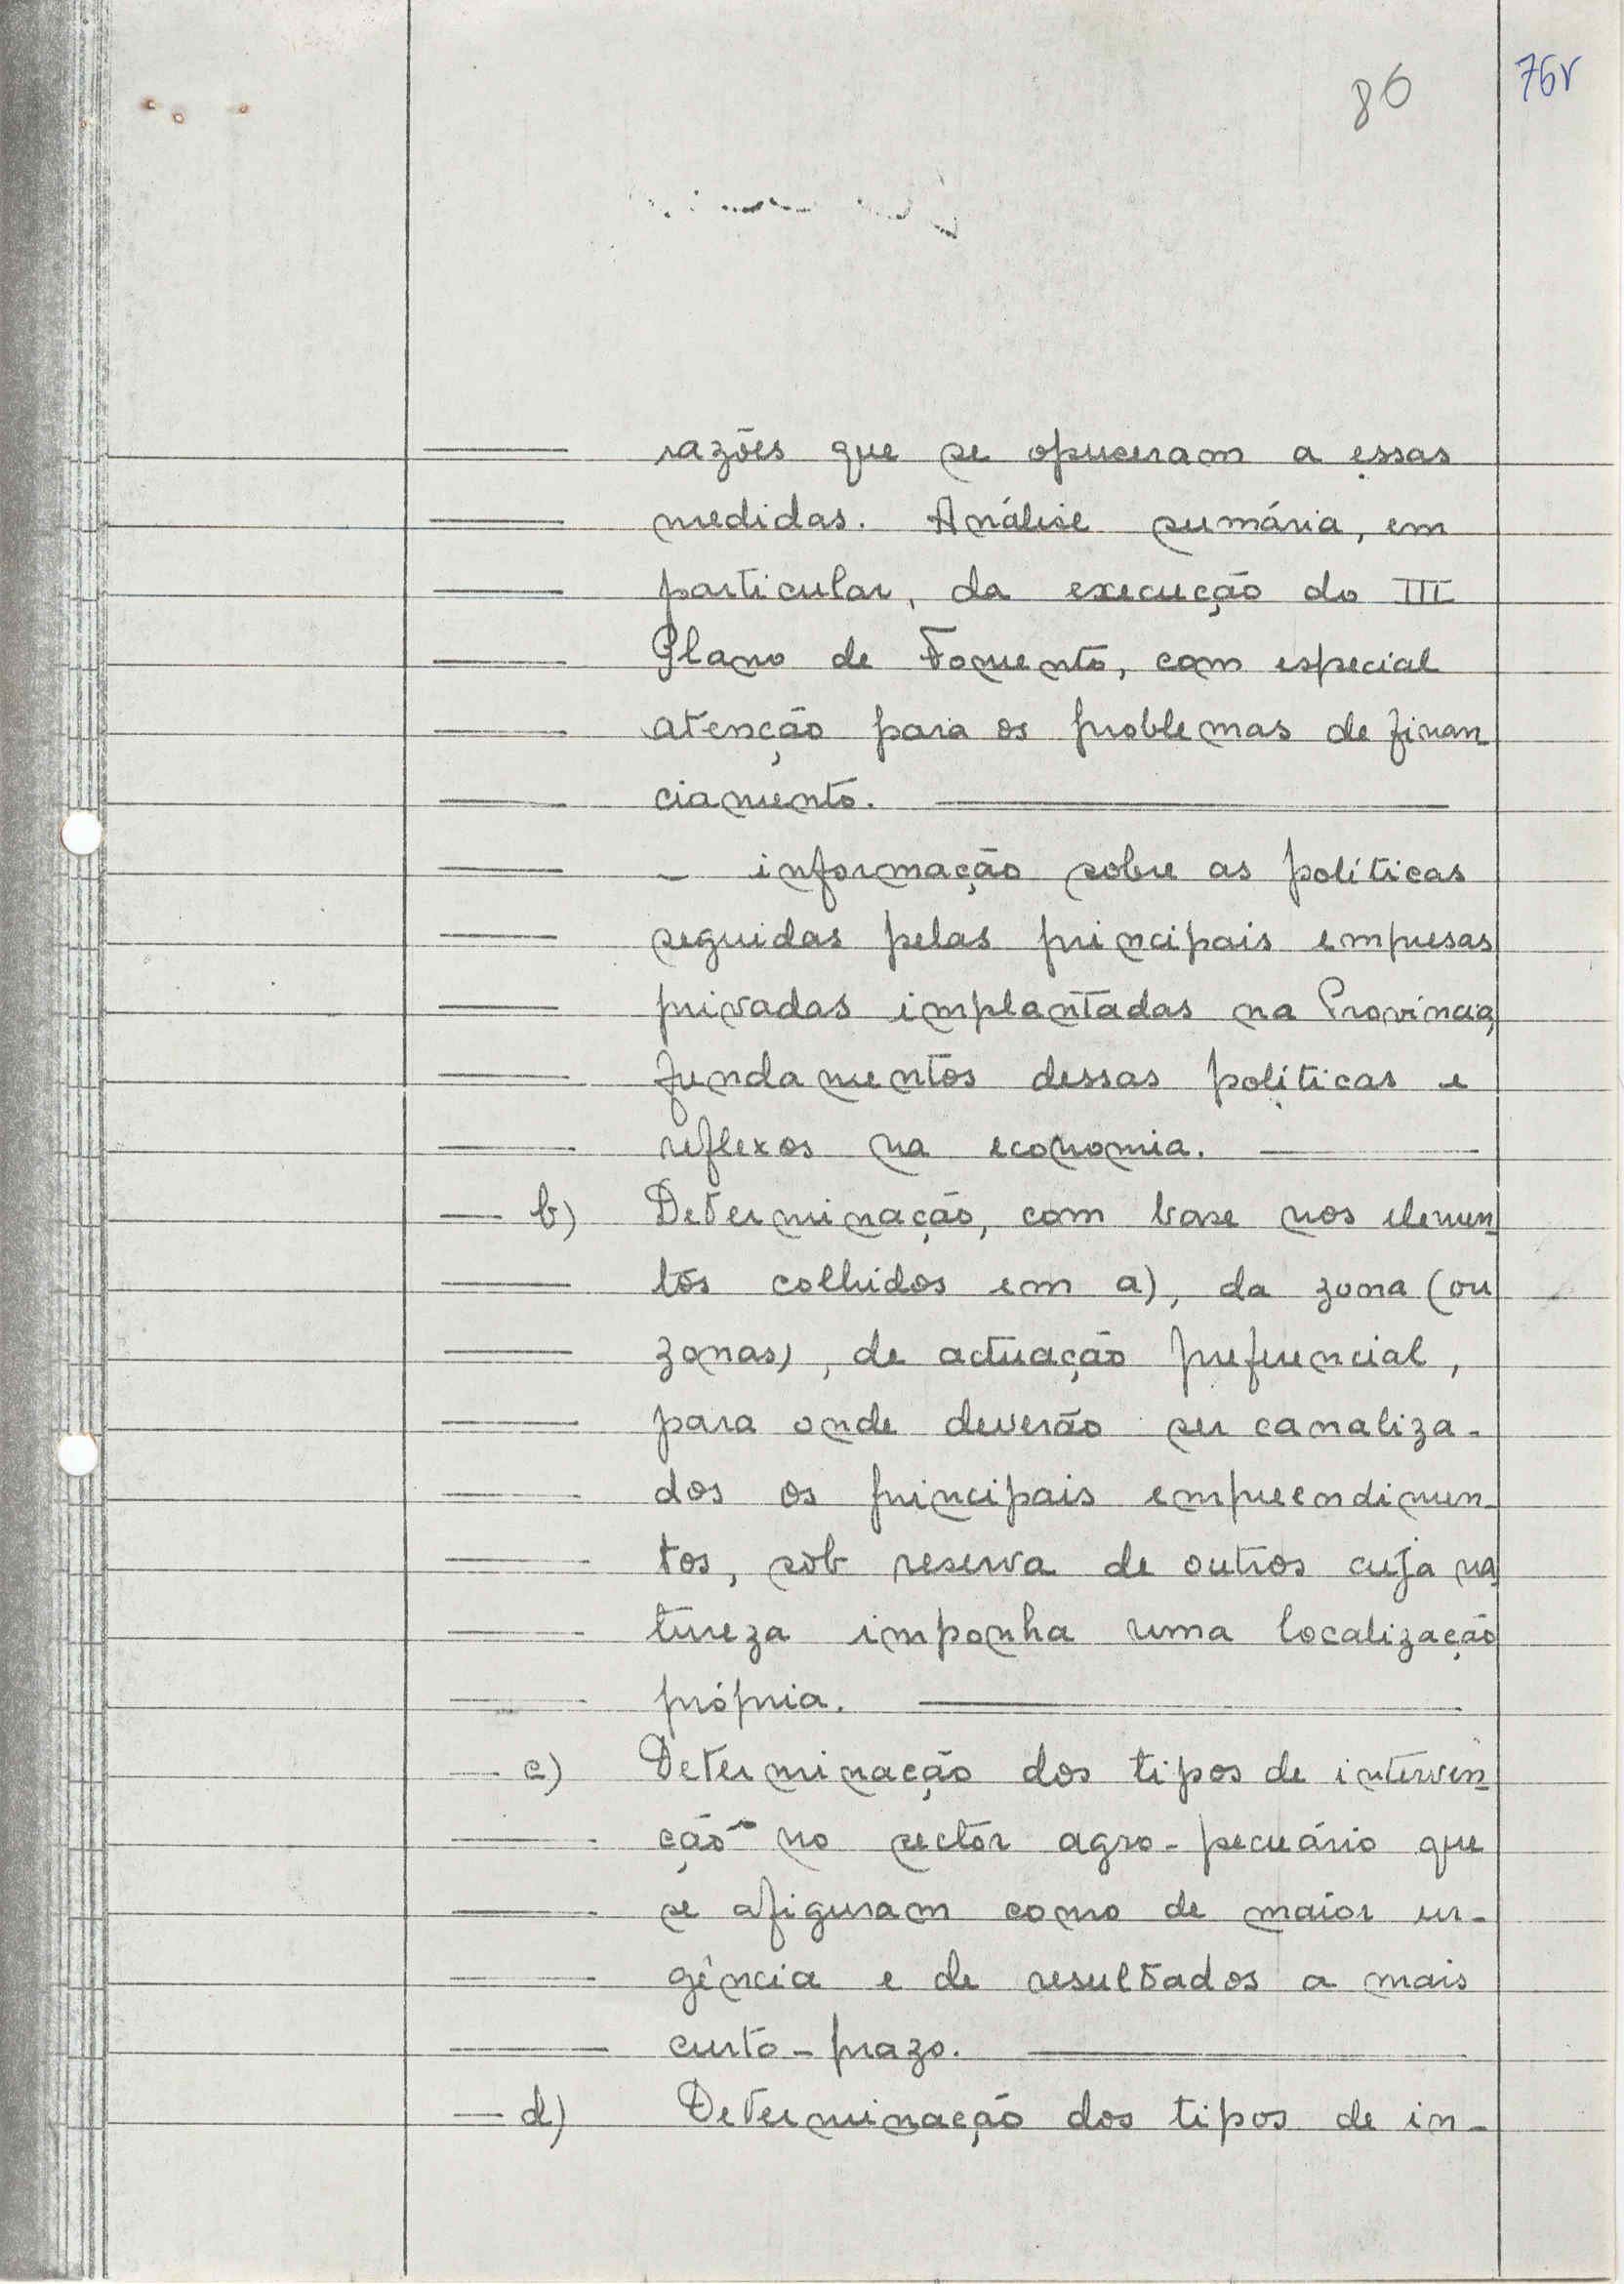 86
76v
razões que se opuceram a essas
medidas. Análise sumária, em
particular, da execução do III
Plano de Fomento, com especial
atenção para os problemas de finan
ciamento.
- informação sobre as políticas
seguidas pelas principais empresas
privadas implantadas na Província,
fundamentos dessas políticas e
reflexos na economia.
b) Determinação, com base nos elemen
tos colhidos em a), da zona (ou
zonas), de actuação preferencial,
para onde deverão ser canaliza-
dos os principais empreendimen-
tos, sob reserva de outros cuja na
tureza imponha uma localização
própria.
c) Determinação dos tipos de interven
ção no sector agro-pecuário que
se afiguram como de maior ur-
gência e de resultados a mais
curto-prazo.
d) Determinação dos tipos de in-